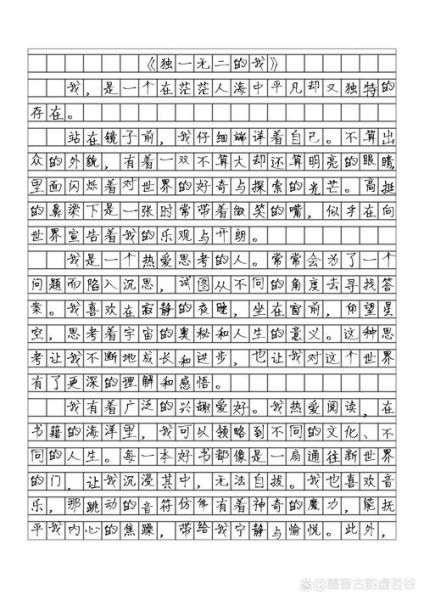 《独一无二的我》
我，是一个在茫茫人海中平凡却又独特的
存在。
站在镜子前，我仔细端详着自己。不算出
众的外貌，有着一双不算大却还算明亮的眼睛，
里面闪烁着对世界的好奇与探索的光芒。高挺
的鼻梁下是一张时常带着微笑的嘴，似乎在向
世界宣告着我的乐观与开朗。
我是一个热爱思考的人。常常会为了一个
问题而陷入沉思，试图从不同的角度去寻找答
案。我喜欢在寂静的夜晚，坐在窗前，仰望星
空，思考着宇宙的奥秘和人生的意义。这种思
考让我不断地成长和进步，也让我对这个世界
有了更深的理解和感悟。
我有着广泛的兴趣爱好。我热爱阅读，在
书籍的海洋里，我可以领略到不同的文化、不
同的人生。每一本好书都像是一扇通往新世界
的门，让我沉浸其中，无法自拔。我也喜欢音
乐，那跳动的音符仿佛有着神奇的魔力，能抚
平我内心的焦躁，带给我宁静与愉悦。此外，